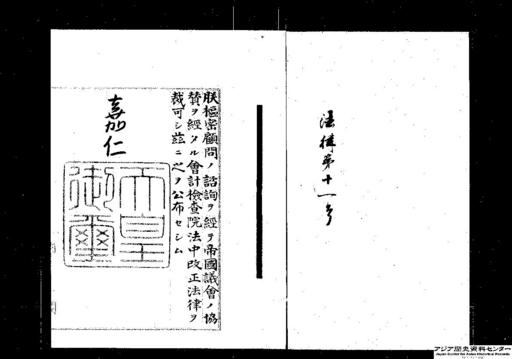 法律第十一号
朕樞密顧問ノ諮詢ヲ經テ帝國議會ノ協
賛ヲ經タル會計檢査院法中改正法律ヲ
裁可シ茲ニ之ヲ公布セシム
嘉仁
天皇
御璽
アジア歴史資料センター
Japan Center for Asian Historical Records